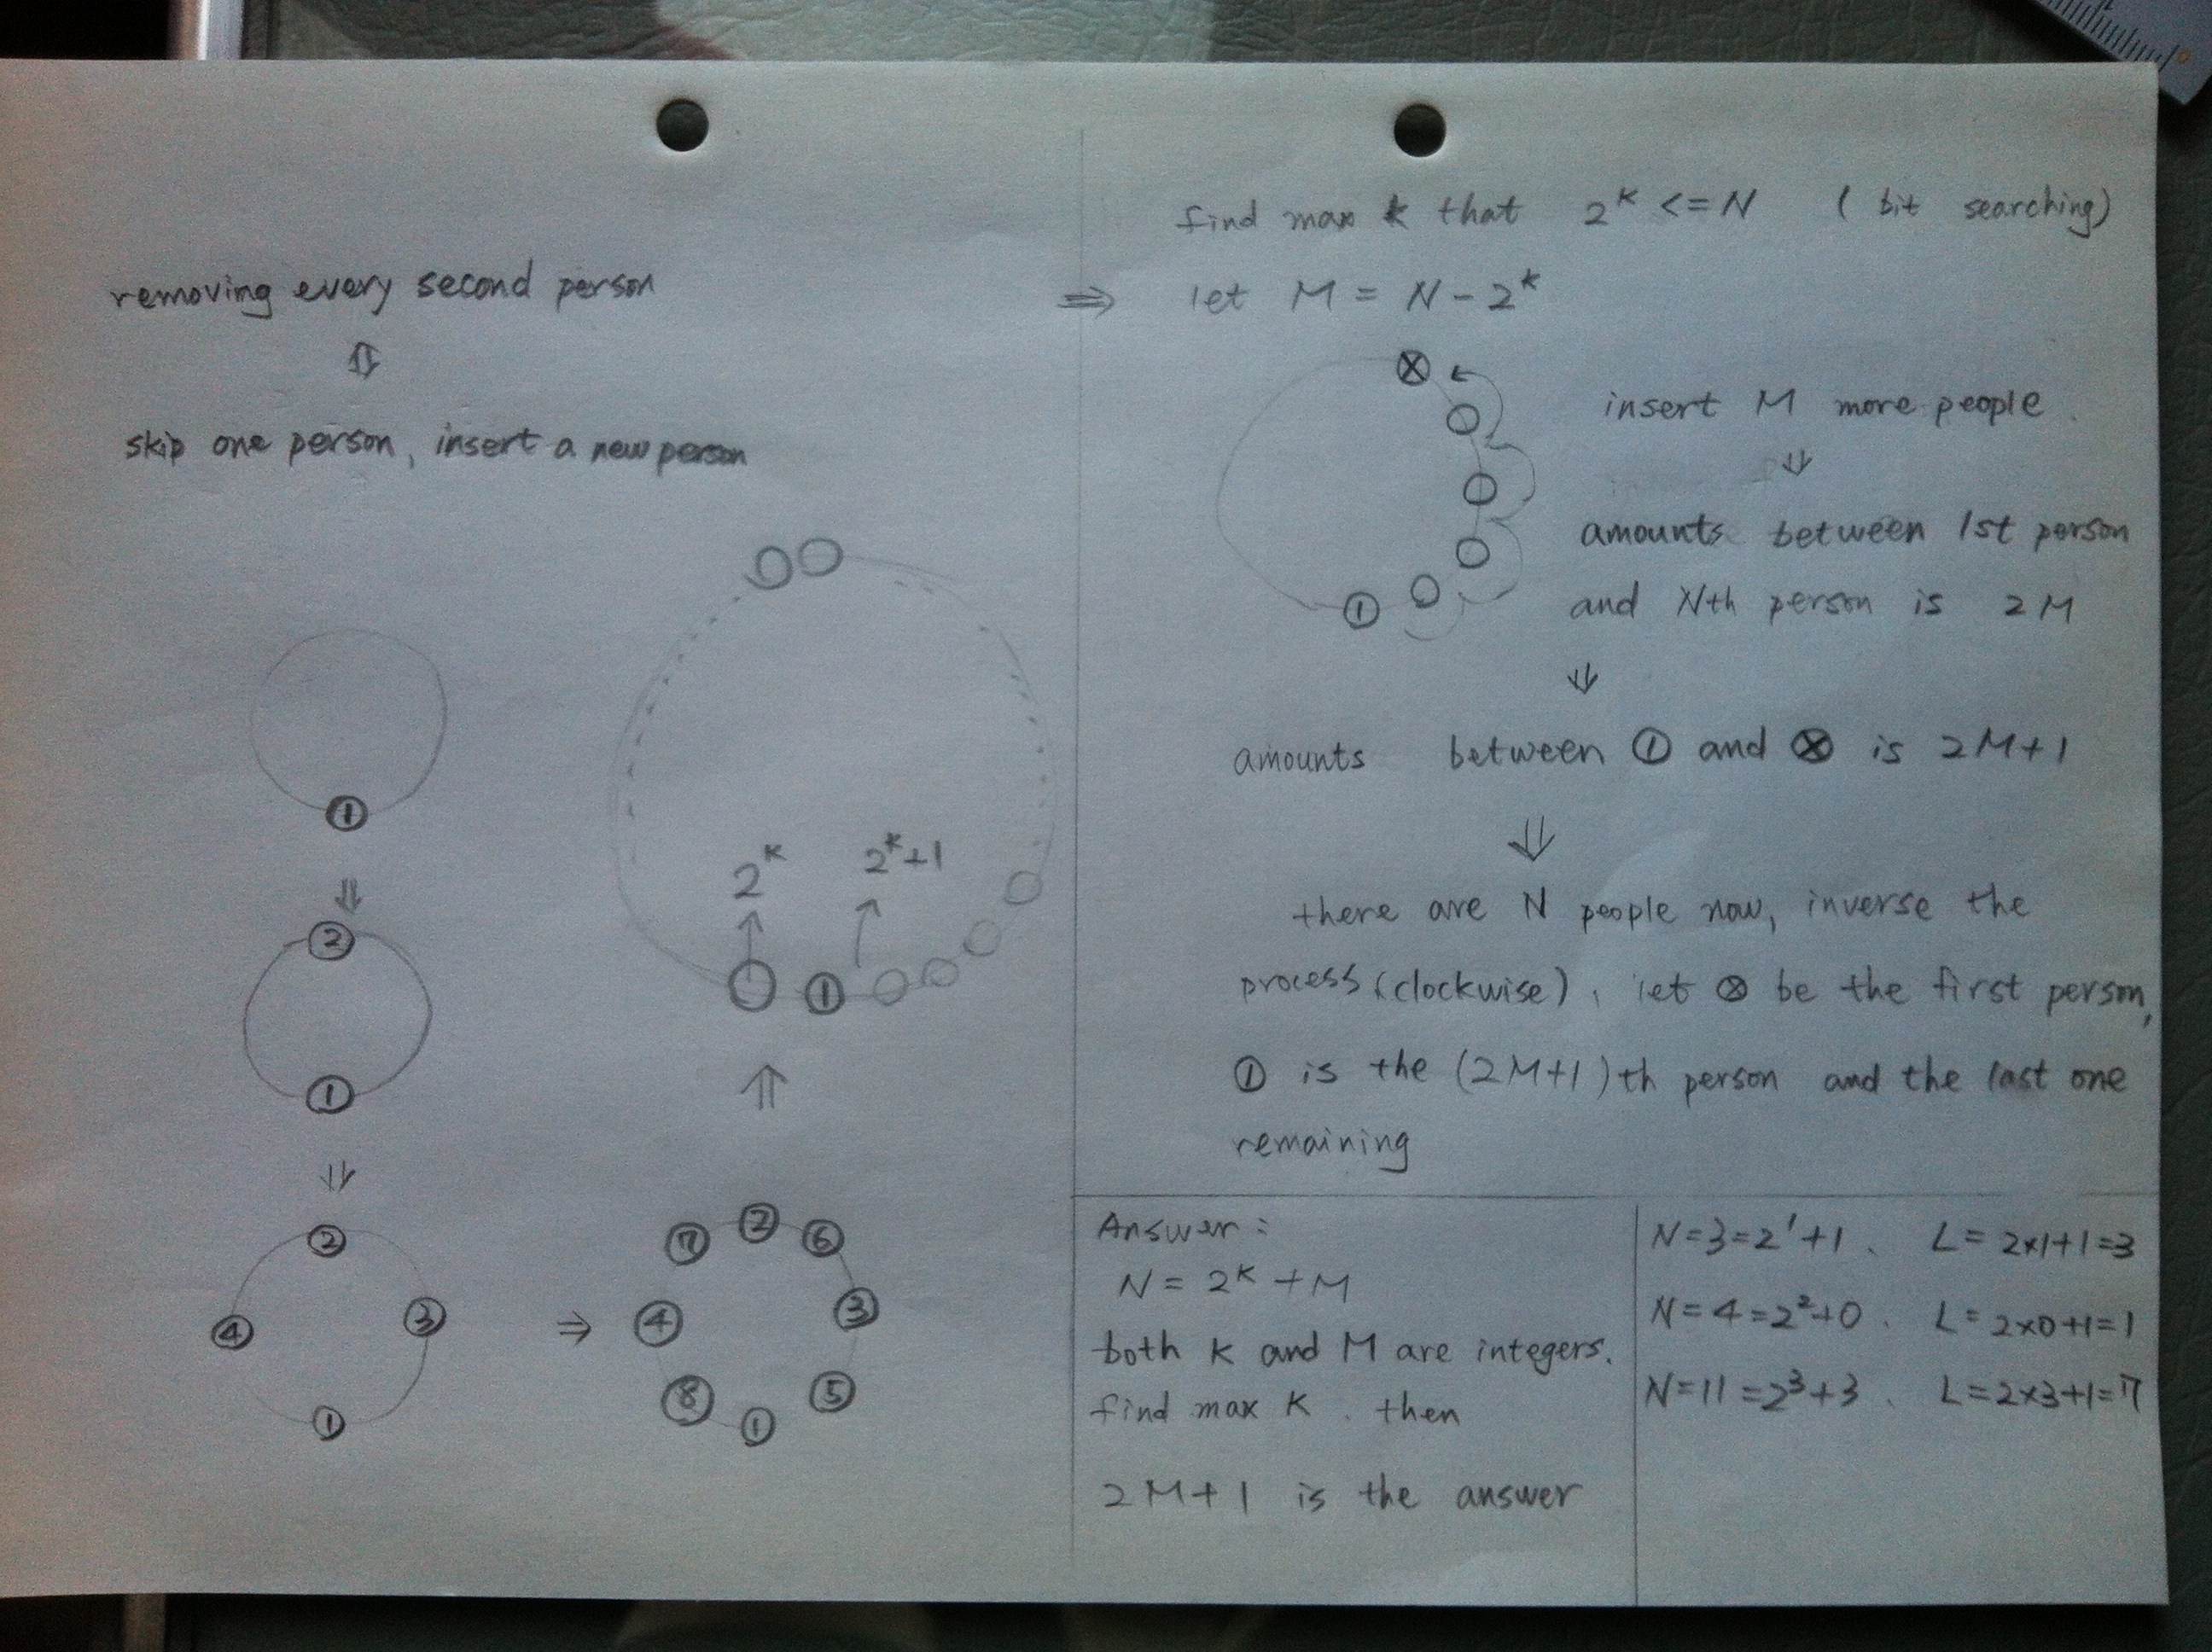 removing every second person
⇕
skip one person, insert a new person
①
⇓
②
①
⇓
②
④ ③
①
⇒
⑦ ② ⑥
④ ③
⑧ ⑤
①
⇑
2^K 2^K+1
①
find max k that 2^K <= N ( bit searching)
⇒ let M = N - 2^K
⊗
①
insert M more people
⇓
amounts between 1st person
and Nth person is 2M
⇓
amounts between ① and ⊗ is 2M+1
⇓
there are N people now, inverse the
process (clockwise), let ⊗ be the first person,
① is the (2M+1)th person and the last one
remaining
Answer:
N = 2^K + M
both K and M are integers.
find max K. then
2M+1 is the answer
N=3=2^1+1、 L= 2×1+1=3
N=4=2^2+0、 L= 2×0+1=1
N=11=2^3+3、 L=2×3+1=7